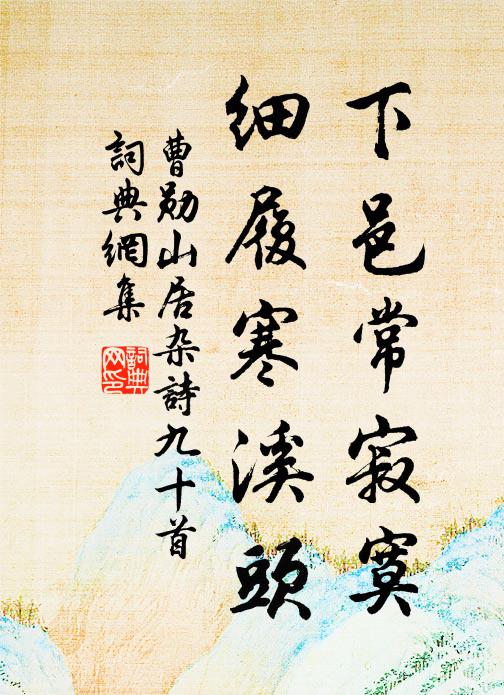 下邑常寂寞
細履寒溪頭
曹勛山居杂詩九十首
詞典網集
詞典网印